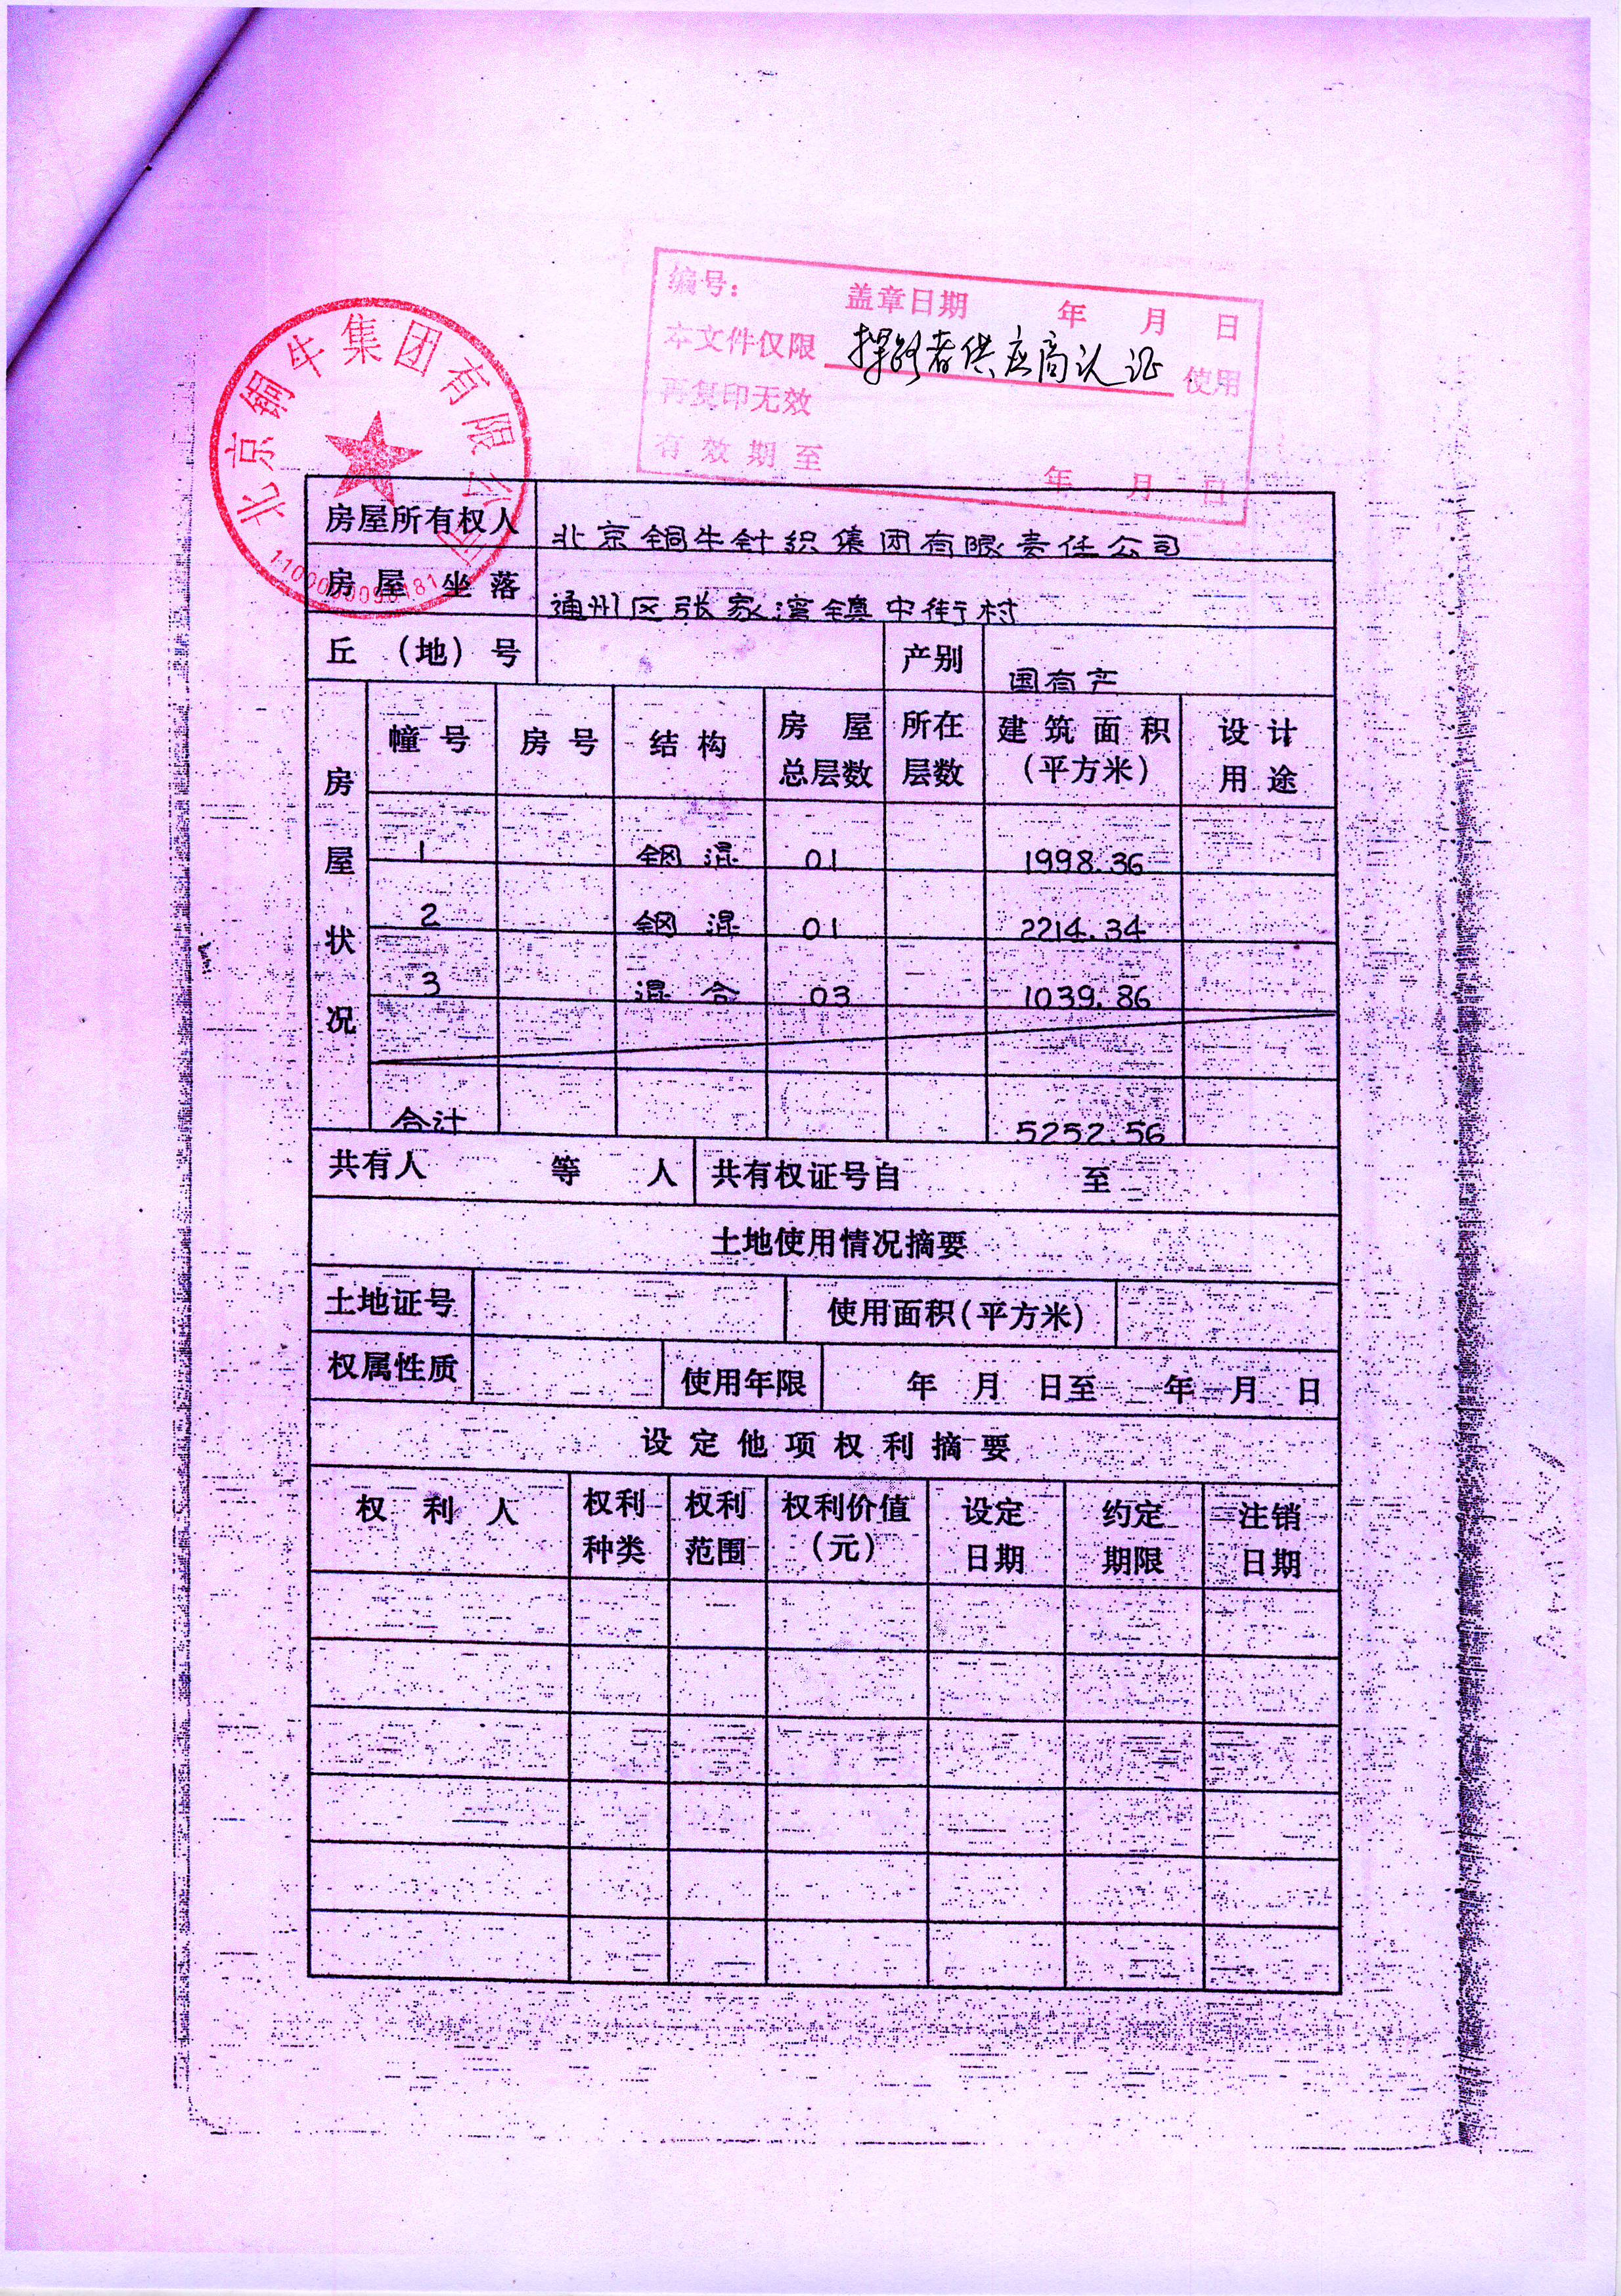 编号： 盖章日期 年 月 日
本文件仅限 探路者供应商认证 使用
再复印无效
有效期至 年 月 日
北京铜牛集团有限公司
房屋所有权人 北京铜牛针织集团有限责任公司
房屋坐落 通州区张家湾镇中街村
丘（地）号 产别 国有产
房屋状况
幢号 房号 结构 房屋总层数 所在层数 建筑面积（平方米） 设计用途
1 钢混 01 1998.36
2 钢混 01 2214.34
3 混合 03 1039.86
合计 5252.56
共有人 等 人 共有权证号自 至
土地使用情况摘要
土地证号 使用面积（平方米）
权属性质 使用年限 年 月 日至 年 月 日
设定他项权利摘要
权利人 权利种类 权利范围 权利价值（元） 设定日期 约定期限 注销日期